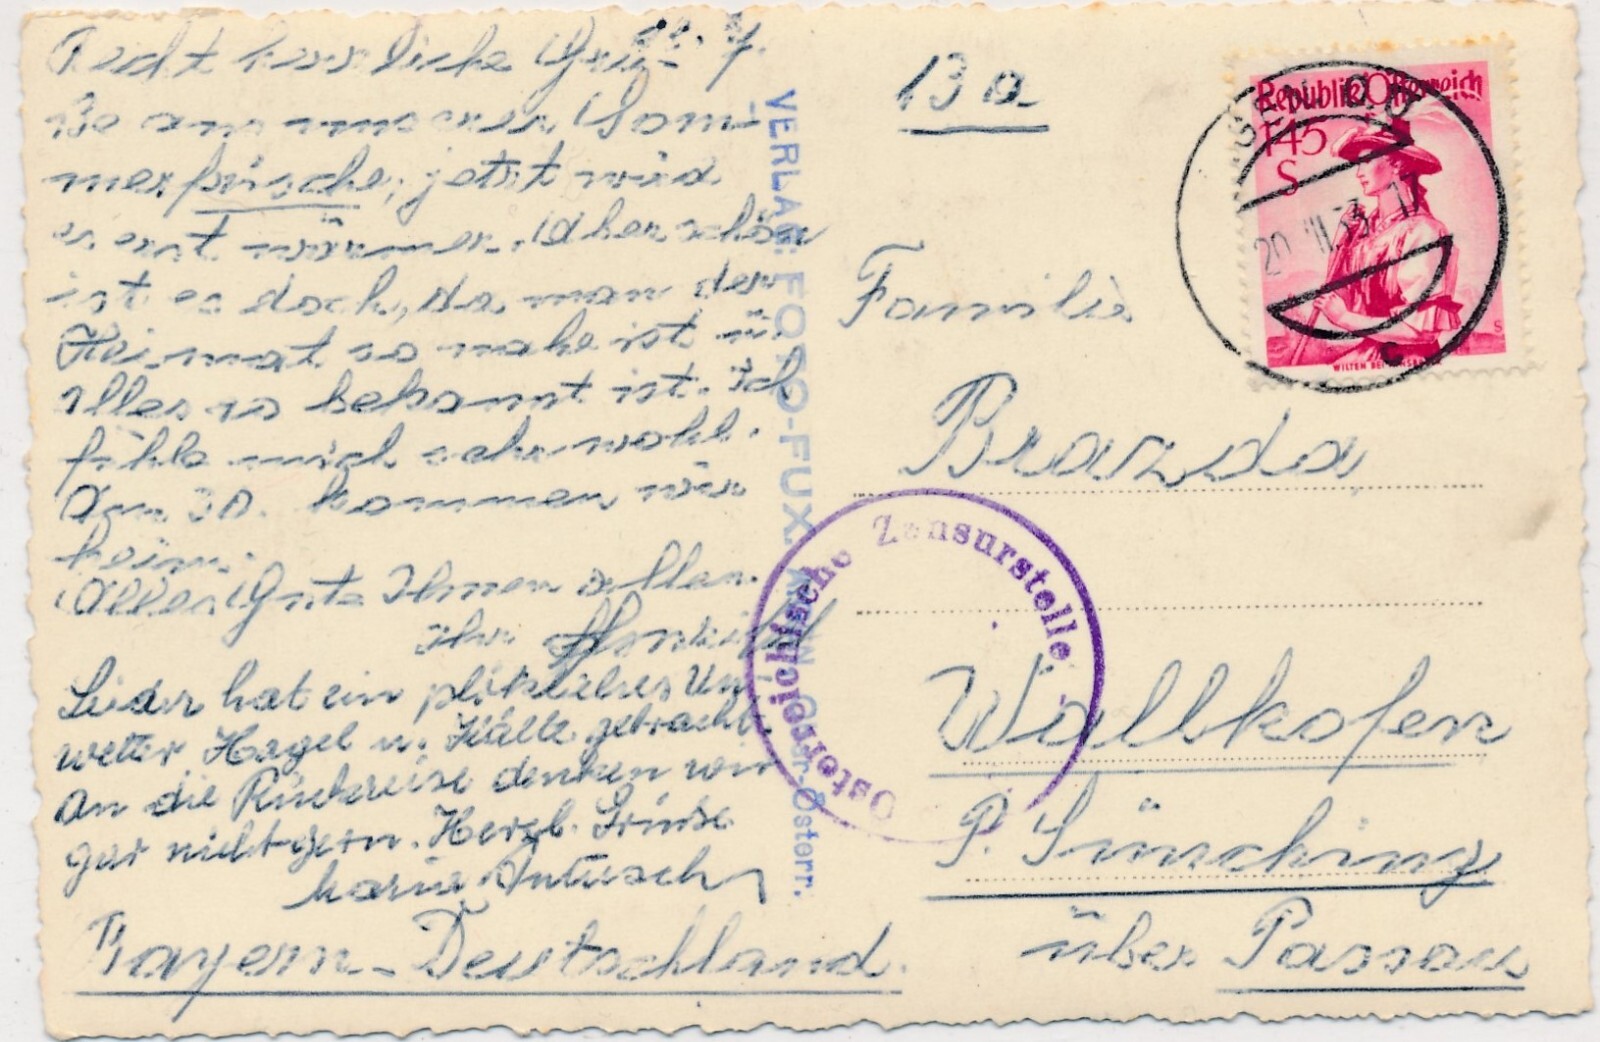 Recht herzliche Grü-
ße aus unserer Som-
merfrische, jetzt wird
es erst wärmer. Aber schön
ist es doch, da man der
Heimat so nahe ist u.
alles so bekannt ist. Ich
fühle mich sehr wohl.
Am 30. kommen wir
heim.
Alles Gute Ihnen allen.
Ihr
Leider hat ein plötzliches Un-
wetter Hagel u. Kälte gebracht.
An die Rückreise denken wir
gar nicht gern. Herzl. Grüße
Maria
Bayern-Deutschland.
VERLAG FOTO-FUX, Ober-Österr.
13a
Republik Österreich
1·45
S
WILTEN BEI
20. VII. 53
c
Familie
Brazda
Österreichische Zensurstelle
Wallkofen
P. Sünching
über Passau